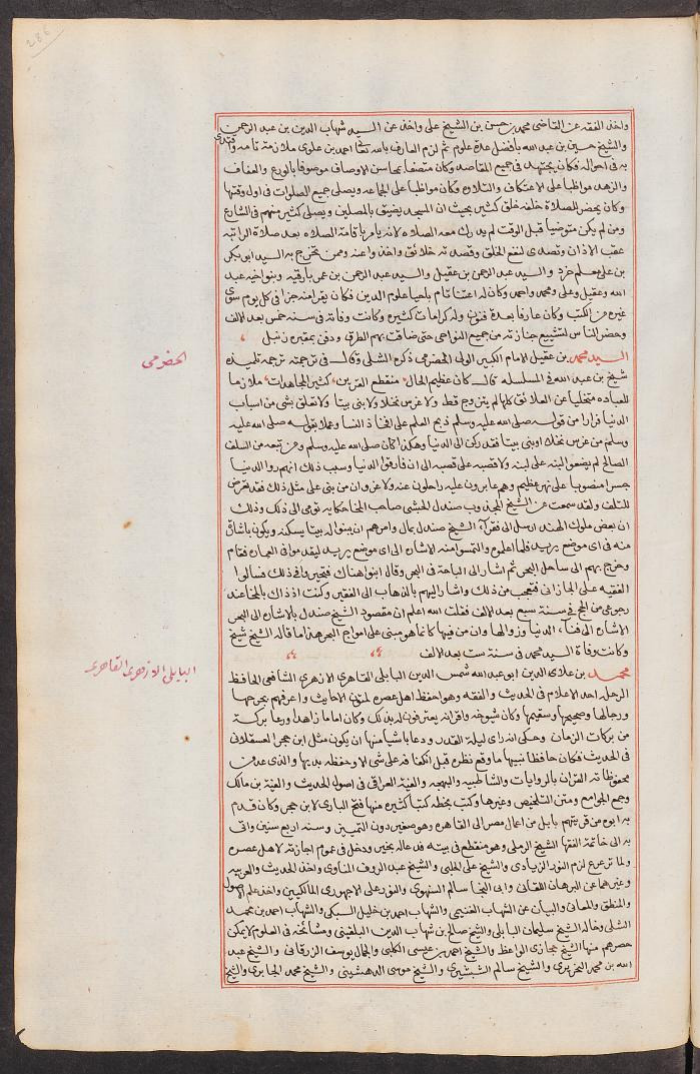 286
واخذ الفقه عن القاضى محمد بن حسن بن الشيخ على واخذ عن السيد شهاب الدين بن عبد الرحمن
والشيخ حسين بن عبد الله بافضل عدة علوم ثم لزم العارف بالله احمد بن علوى ملازمة تامه واقتدى
به فى احواله فكان يجتهد فى جميع المقاصد وكان متصفا بمحاسن الاوصاف موصوفا بالورع والعفاف
والزهد مواظبا على الاعتكاف والتلاوه وكان مواظبا على الجماعه ويصلى جميع الصلوات فى اول وقتها
وكان يحضر للصلاة خلفه خلق كثير بحيث ان المسجد يضيق بالمصلين ويصلى كثير منهم فى الشارع
ومن لم يكن متوضيا قبل الوقت لم يدرك معه الصلاه لانه يامر باقامة الصلاه بعد صلاة الراتبه
عقب الاذان وتصدى لنفع الخلق وقصدته خلائق واخذ واعنه وممن تخرج به السيد ابو بكر
بن على معلم خرد والسيد عبد الرحمن بن عقيل والسيد عبد الرحمن بن عمر بارقبه وبنواخيه عبد
الله وعقيل وعلى ومحمد واحمد وكان له اعتناء تام باحيا علوم الدين فكان يقرا منه جزا فى كل يوم سوى
غيره من الكتب وكان عارفا بعدة فنون وله كرامات كثيره وكانت وفاته فى سنه خمس بعد الالف
وحضر الناس لتشييع جنازته من جميع النواحى حتى ضاقت بهم الطرق ودفن بمقبره زنبل
الحضرمى
السيد محمد بن عقيل الامام الكبير الولى الحضرمى ذكره الشلى وقال فى ترجمته ترجمه تلميذه
شيخ بن عبد الله فى السلسله قال كان عظيم الحال منقطع القرين كثير المجاهدات ملازما
للعباده متخليا عن العلائق كلها لم يتزوج قط ولا غرس نخلا ولا بنى بيتا ولا تعلق بشى من اسباب
الدنيا فرارا من قوله صلى الله عليه وسلم ذبح العلم على افخاذ النسا وعملا بقوله صلى الله عليه
وسلم من غرس نخلا او بنى بيتا فقد ركن الى الدنيا وهكذا كان صلى الله عليه وسلم ومن تبعه من السلف
الصالح لم يضعوا لبنه على لبنه ولا قصبه على قصبه الى ان فارقوا الدنيا وسبب ذلك انهم راوا الدنيا
جسرا منصوبا على نهر عظيم وهم عابرون عليه راحلون عنه ولا غرو ان من بنى على مثل ذلك فقد تعرض
للتلف ولقد سمعت عن الشيخ المجذوب صندل الحبشى صاحب المخا حكايه تومى الى ذلك وذلك
ان بعض ملوك الهند ارسل الى فقرآء الشيخ صندل بمال وامرهم ان يبنوا له بيتا يسكنه ويكون باشاق
منه فى اى موضع يريد فلما اعلموه والتمسوا منه الاشاره الى اى موضع يريد ليقدموا فى العماره فقام
وخرج بهم الى ساحل البحر ثم اشار الى الباحة فى البحر وقال ابنوا هناك فتحيروا فى ذلك فسالوا
الفقيه على الجازانى فتعجب من ذلك واشار اليهم بالذهاب الى الفقير وكنت اذ ذاك بالمخا عند
رجوعى من الحج فى سنة سبع بعد الالف فقلت الله اعلم ان مقصود الشيخ صندل بالاشاره الى البحر
الاشاره الى فنآء الدنيا وزوالها وان من فيها كانما هو مبنى على امواج البحر هذا ما قاله الشيخ شيخ
وكانت وفاة السيد محمد فى سنة ست بعد الالف
البابلى الازهرى القاهرى
محمد بن علاى الدين ابو عبد الله شمس الدين البابلى القاهرى الازهرى الشافعى الحافظ
الرحله احد الاعلام فى الحديث والفقه وهو احفظ اهل عصره لمتون الاحاديث واعرفهم بجرحها
ورجالها وصحيحها وسقيمها وكان شيوخه واقرانه يعترفون له بذلك وكان اماما زاهدا ورعا بركة
من بركات الزمان وحكى انه راى ليلة القدر ودعا باشيا منها ان يكون مثل ابن حجر العسقلانى
فى الحديث فكان حافظا نبيها ما وقع نظره قبل انكفافه على شى الا وحفظه بديها والذى عد من
محفوظاته القران بالروايات والشاطبيه والبهجه والفية العراقى فى اصول الحديث والفية بن مالك
وجمع الجوامع ومتن التلخيص وغيرها وكتب بخطه كتبا كثيره منها فتح البارى لابن حجر وكان قدم
به ابوه من قريتهم بابل من اعمال مصر الى القاهره وهو صغير دون التمييز وسنه اربع سنين واتى
به الى خاتمة الفقها الشيخ الرملى وهو منقطع فى بيته فدعا له بخير ودخل فى عموم اجازته لاهل عصره
ولما ترعرع لزم النور الزيادى والشيخ على الحلبى والشيخ عبد الروف المناوى واخذ الحديث والعربيه
وغيرهما عن البرهان اللقانى وابى النجا سالم السنهورى والنور على الاجهورى المالكيين واخذ علم الاصول
والمنطق والمعانى والبيان عن الشهاب الغنيمى والشهاب احمد بن خليل السبكى والشهاب احمد بن محمد
الشلبى وخاله الشيخ سليمان البابلى والشيخ صالح بن شهاب الدين البلقينى ومشائخه فى العلوم لا يمكن
حصرهم منها الشيخ حجازى الواعظ والشيخ احمد بن عيسى الكلبى والجمال يوسف الزرقانى والشيخ عبد
الله بن محمد النحريرى والشيخ سالم الشبشيرى والشيخ موسى الدهشينى والشيخ محمد الجابرى والشيخ